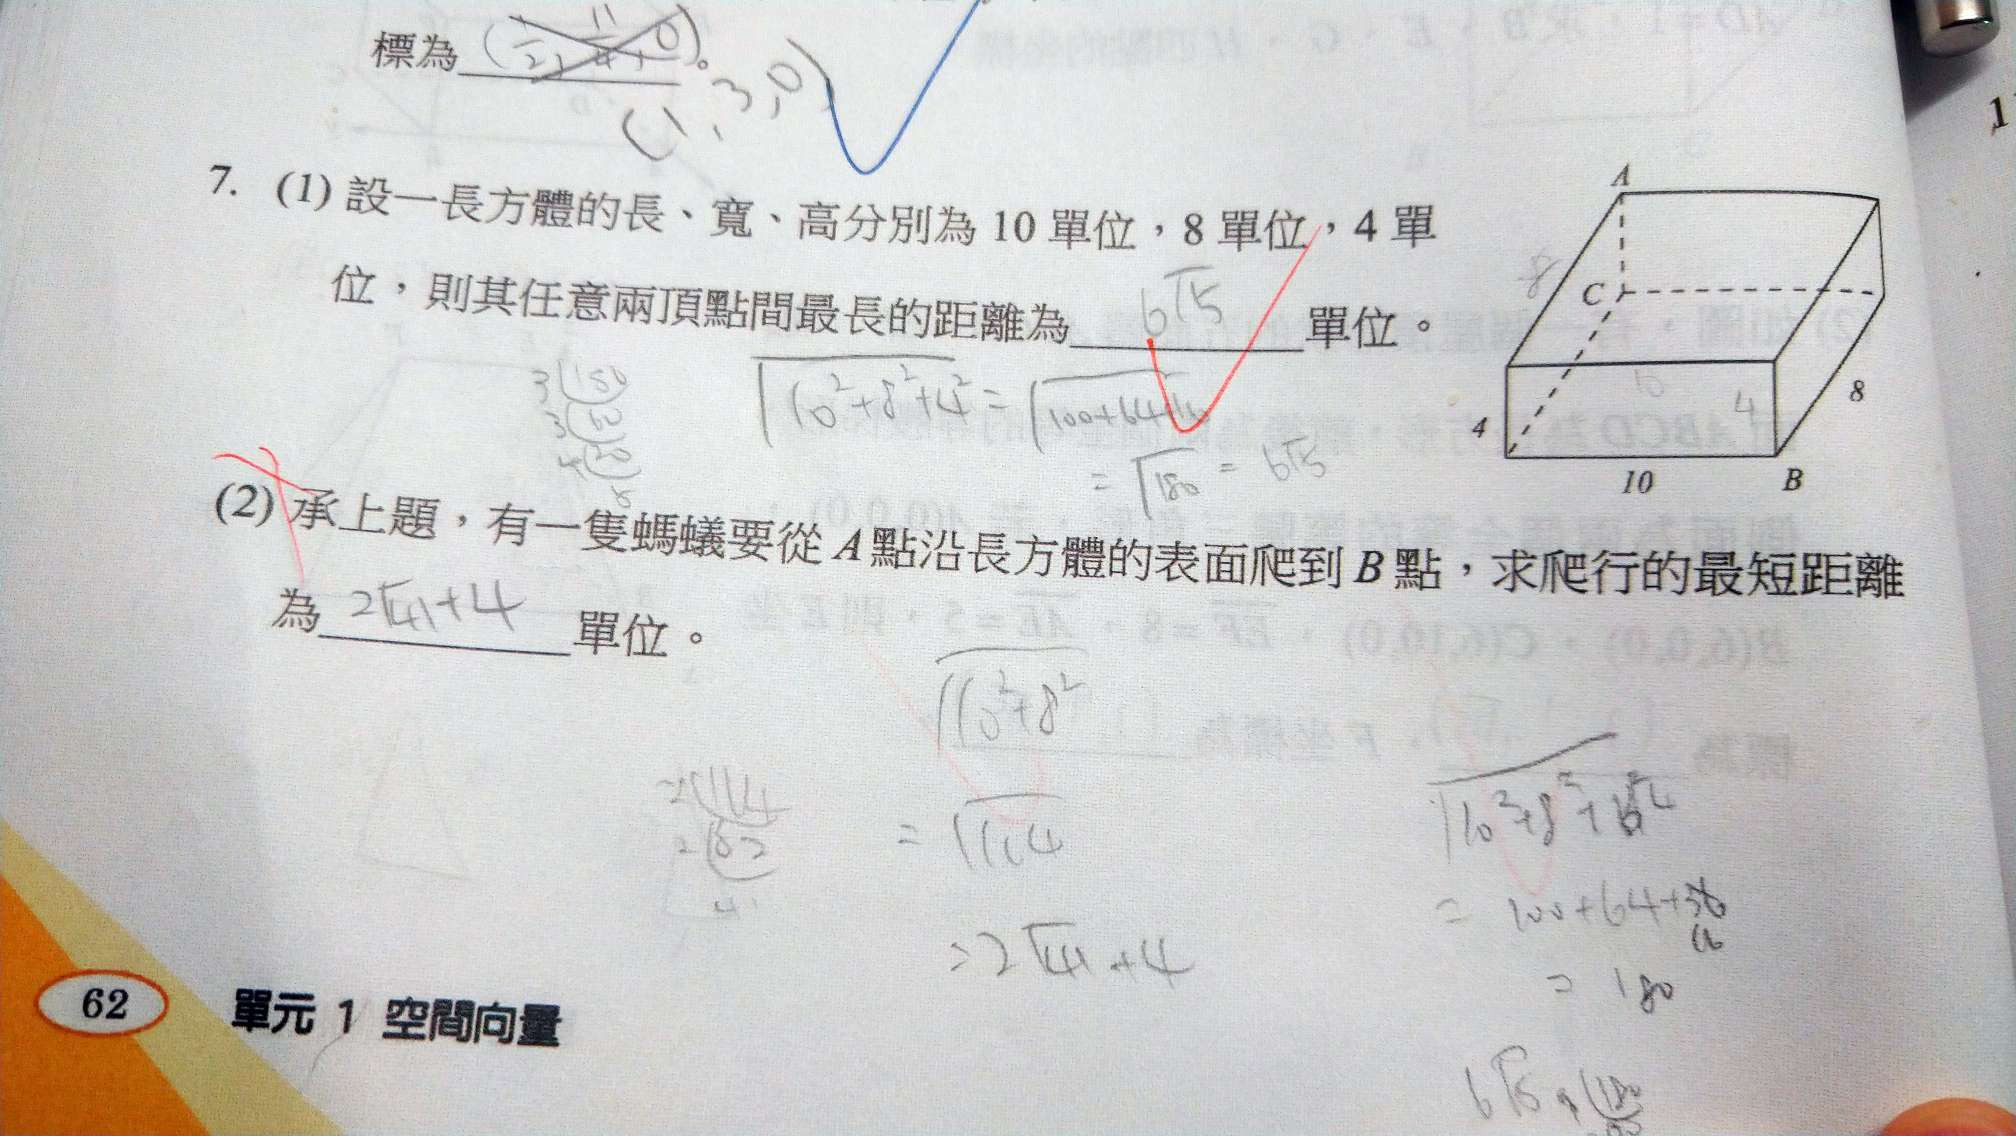 標為(1/2, 11/4, 0)。
(1, 3, 0)
7. (1) 設一長方體的長、寬、高分別為 10 單位，8 單位，4 單
位，則其任意兩頂點間最長的距離為 6√5 單位。
√10²+8²+4² = √100+64+16
= √180 = 6√5
3 180
3 60
20
A
8
C
10
4
8
4
10
B
(2) 承上題，有一隻螞蟻要從 A 點沿長方體的表面爬到 B 點，求爬行的最短距離
為 2√41+4 單位。
√10²+8²
= √164
=2√41+4
2 164
2 82
41
√10²+8²+4²
= 100+64+16
= 180
6√5
180
62 單元 1 空間向量